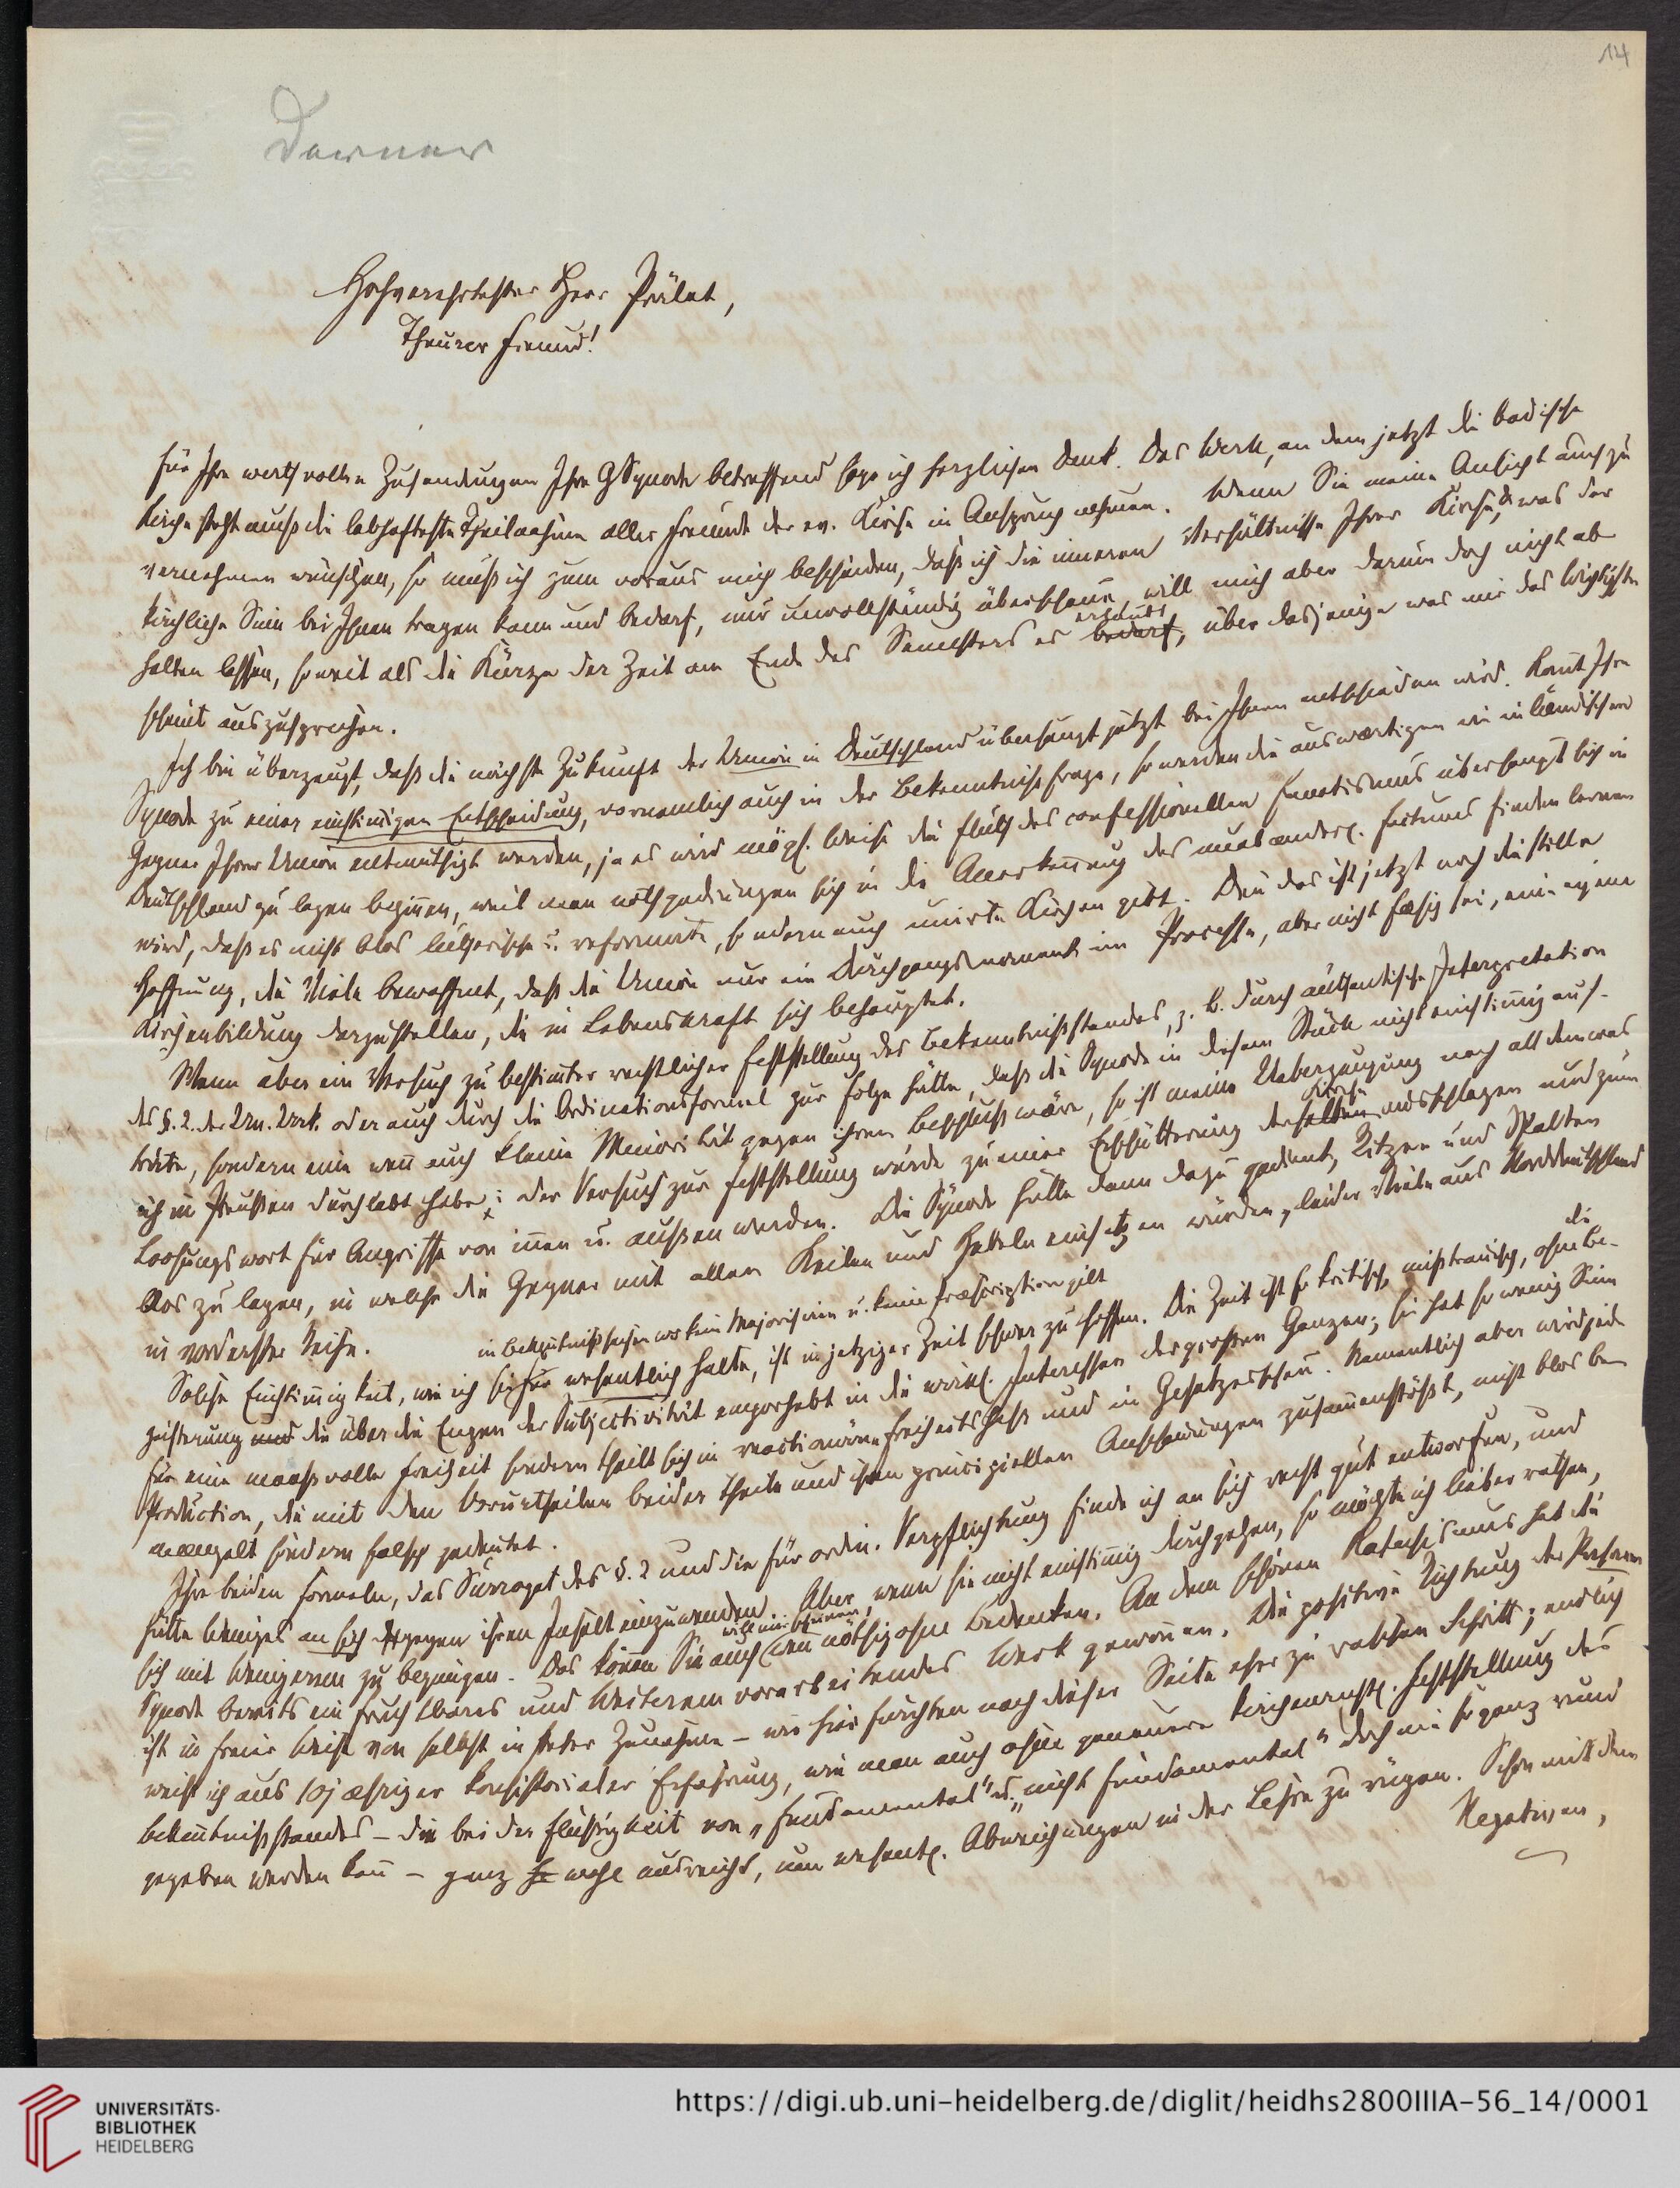 14
Dorner
Hochverehrtester Herr Prälat,
Theurer Freund!
Für Ihre werthvollen Zusendungen Ihre GSynode betreffend sage ich herzlichen Dank. Das Werk, an dem jetzt die badische
Kirche steht muß die lebhafteste Theilnahme aller Freunde der ev. Kirche in Anspruch nehmen. Wenn Sie meine Ansicht auch zu
vernehmen wünschen, so muß ich zum voraus mich bescheiden, daß ich die inneren Verhältnisse Ihrer Kirche, was der
kirchliche Sinn bei Ihnen tragen kann und bedarf, nur unvollständig überschaue, will mich aber darum doch nicht ab
halten lassen, soweit als die Kürze der Zeit am Ende des Semesters es bedarf, erlaubt über dasjenige was mir das Wichtigste
scheint auszusprechen.
Ich bin überzeugt, daß die nächste Zukunft der Union in Deutschland überhaupt jetzt bei Ihnen entschieden wird. Kommt Ihre
Synode zu einer einstimigen Entscheidung, vornemlich auch in der Bekenntnißfrage, so werden die auswärtigen wie inländischen
Gegner Ihrer Union entmuthigt werden, ja es wird mögl. Weise die Fluth des confessionellen Fanatismus überhaupt sich in
Deutschland zu legen beginnen, weil man nothgedrungen sich in die Anerkennung des unabänderl. Factums finden lernen
wird, daß es nicht blos lutherische u. reformirte, sondern auch unirte Kirchen gibt. Denn das ist jetzt noch die stille
Hoffnung, die Viele bewaffnet, daß die Union nur ein Durchgangsmoment im Processe, aber nicht fähig sei, eine eigene
Kirchenbildung darzustellen, die in Lebenskraft sich behauptet.
Wenn aber ein Versuch zu bestimter rechtlicher Feststellung des Bekenntnißstandes, z. B. durch authentische Interpretation
des §. 2. der Un. Urk. oder auch durch die Ordinationsformel zur Folge hätte, daß die Synode in diesem Stück nicht einstimig auf-
träte, sondern eine wenn auch kleine Minorität gegen ihren Beschluß wäre, so ist meine Ueberzeugung nach all dem was
ich in Preußen durchlebt habe: der Versuch zur Feststellung würde zu einer Erschütterung derselben Kirche ausschlagen und zum
Loosungswort für Angriffe von innen u. außen werden. Die Synode hätte dann dazu gedient, Ritzen und Spalten
blos zu legen, in welche die Gegner mit allen Keilen und Hebeln einsetzen würden, leider Viele aus Norddeutschland
in vorderster Reihe.
in Bekenntnißsachen wo kein Majorisiren u. keine Praescription gilt
Solche Einstimigkeit, wie ich sie für wesentlich halte, ist in jetziger Zeit schwer zu hoffen. Die Zeit ist so kritisch, mißtrauisch, ohne die Be-
geisterung und die über die Engen der Subjectivität emporhebt in die wirkl. Interessen des großen Ganzen; sie hat so wenig Sinn
für eine maaßvolle Freiheit sondern theilt sich in reactionären Freiheitshaß und in Gesetzesscheu. Namentlich aber wird jede
Production, die mit den Vorurtheilen beider Theile und ihren principiellen Anschauungen zusammenstößt, nicht blos be-
mängelt sondern falsch gedeutet.
Ihre beiden Formeln, das Surrogat des §. 2 und die für ordin. Verpflichtung finde ich an sich recht gut entworfen, und
hätte Weniges an sich gegen ihren Inhalt einzuwenden. Aber, wenn sie nicht einstimig durchgehen, so möchte ich lieber rathen,
sich mit Wenigerem zu begnügen. Das können Sie auch wenn nöthig ohne Bedenken. An dem schönen Katechismus hat die
Synode bereits ein fruchtbares und Weiterem vorarbeitendes Werk gewonnen. Die positive Richtung der Pfarrer
ist in freier Weise von selbst in steter Zunahme – wir hier fürchten nach dieser Seite eher zu raschen Schritt; endlich
weiß ich aus 10jähriger konsistorialer Erfahrung, wie man auch ohne genauere kirchenrechtl. Feststellung des
Bekenntnißstandes – die bei der Flüssigkeit von „fundamental" u. „nicht fundamental" doch nie so ganz rund
gegeben werden kann – ganz wohl ausreicht, um wesentl. Abweichungen in der Lehre zu rügen. Schon mit dem
Negativen,
UNIVERSITÄTS-
BIBLIOTHEK
HEIDELBERG
https://digi.ub.uni-heidelberg.de/diglit/heidhs2800IIIA-56_14/0001